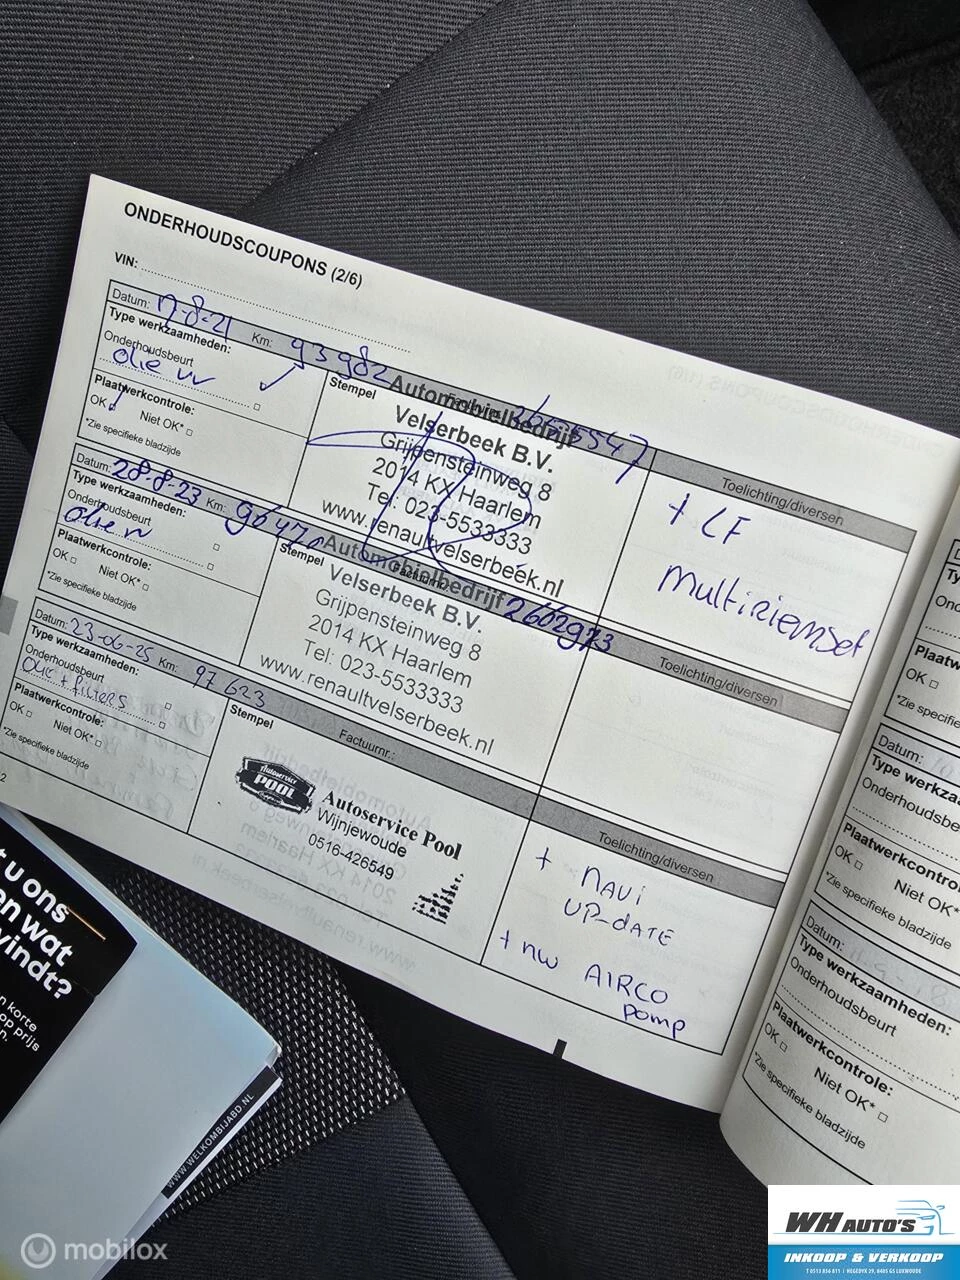 ONDERHOUDSCOUPONS (2/6)
VIN:
Datum: 17-8-21 Km: 93982
Type werkzaamheden:
Onderhoudsbeurt
olie vv
Plaatwerkcontrole:
OK
Niet OK*
*Zie specifieke bladzijde
Stempel
Automobielbedrijf
Velserbeek B.V.
Grijpensteinweg 8
2014 KX Haarlem
Tel. 023-5533333
www.renaultvelserbeek.nl
Toelichting/diversen
+ LF
Multiriemset
Datum: 28-8-23 Km:
Type werkzaamheden:
Onderhoudsbeurt
Plaatwerkcontrole:
OK
Niet OK*
*Zie specifieke bladzijde
Stempel
Factuurnr.: 2602973
Automobielbedrijf
Velserbeek B.V.
Grijpensteinweg 8
2014 KX Haarlem
Tel: 023-5533333
www.renaultvelserbeek.nl
Toelichting/diversen
Datum: 23-06-25 Km: 97623
Type werkzaamheden:
Onderhoudsbeurt
Olie + filters
Plaatwerkcontrole:
OK
Niet OK*
*Zie specifieke bladzijde
Stempel
Factuurnr.:
Autoservice
POOL
Autoservice Pool
Wijnjewoude
0516-426549
Toelichting/diversen
+ NAVI
UP-DATE
+ nw AIRCO
Pomp
Plaatw
OK
*Zie specifie
Datum:
Type werkza
Onderhoudsbe
Plaatwerkcontrol
OK
Niet OK*
*Zie specifieke bladzijde
Datum:
Type werkzaamheden:
Onderhoudsbeurt
Plaatwerkcontrole:
OK
Niet OK*
*Zie specifieke bladzijde
t u ons
en wat
vindt?
n korte
op prijs
WWW.WELKOMBIJABD.NL
mobilox
WH AUTO'S
INKOOP & VERKOOP
T 0513 856 811 | HEGEDYK 29, 8405 GS LUXWOUDE